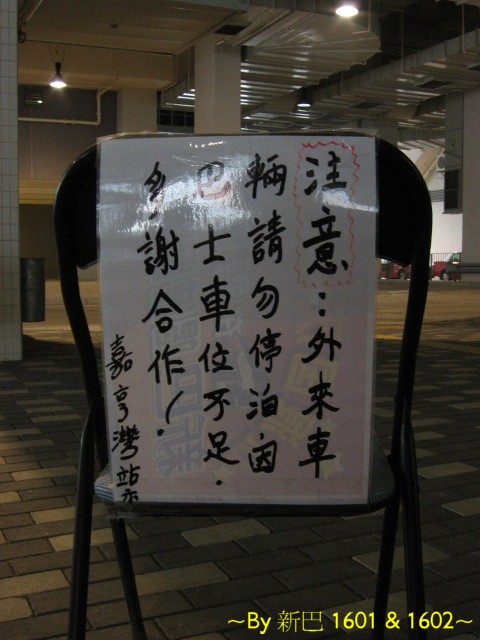 注意：外來車
輛請勿停泊因
巴士車位不足．
多謝合作！
嘉亨灣站
~By 新巴 1601 & 1602~